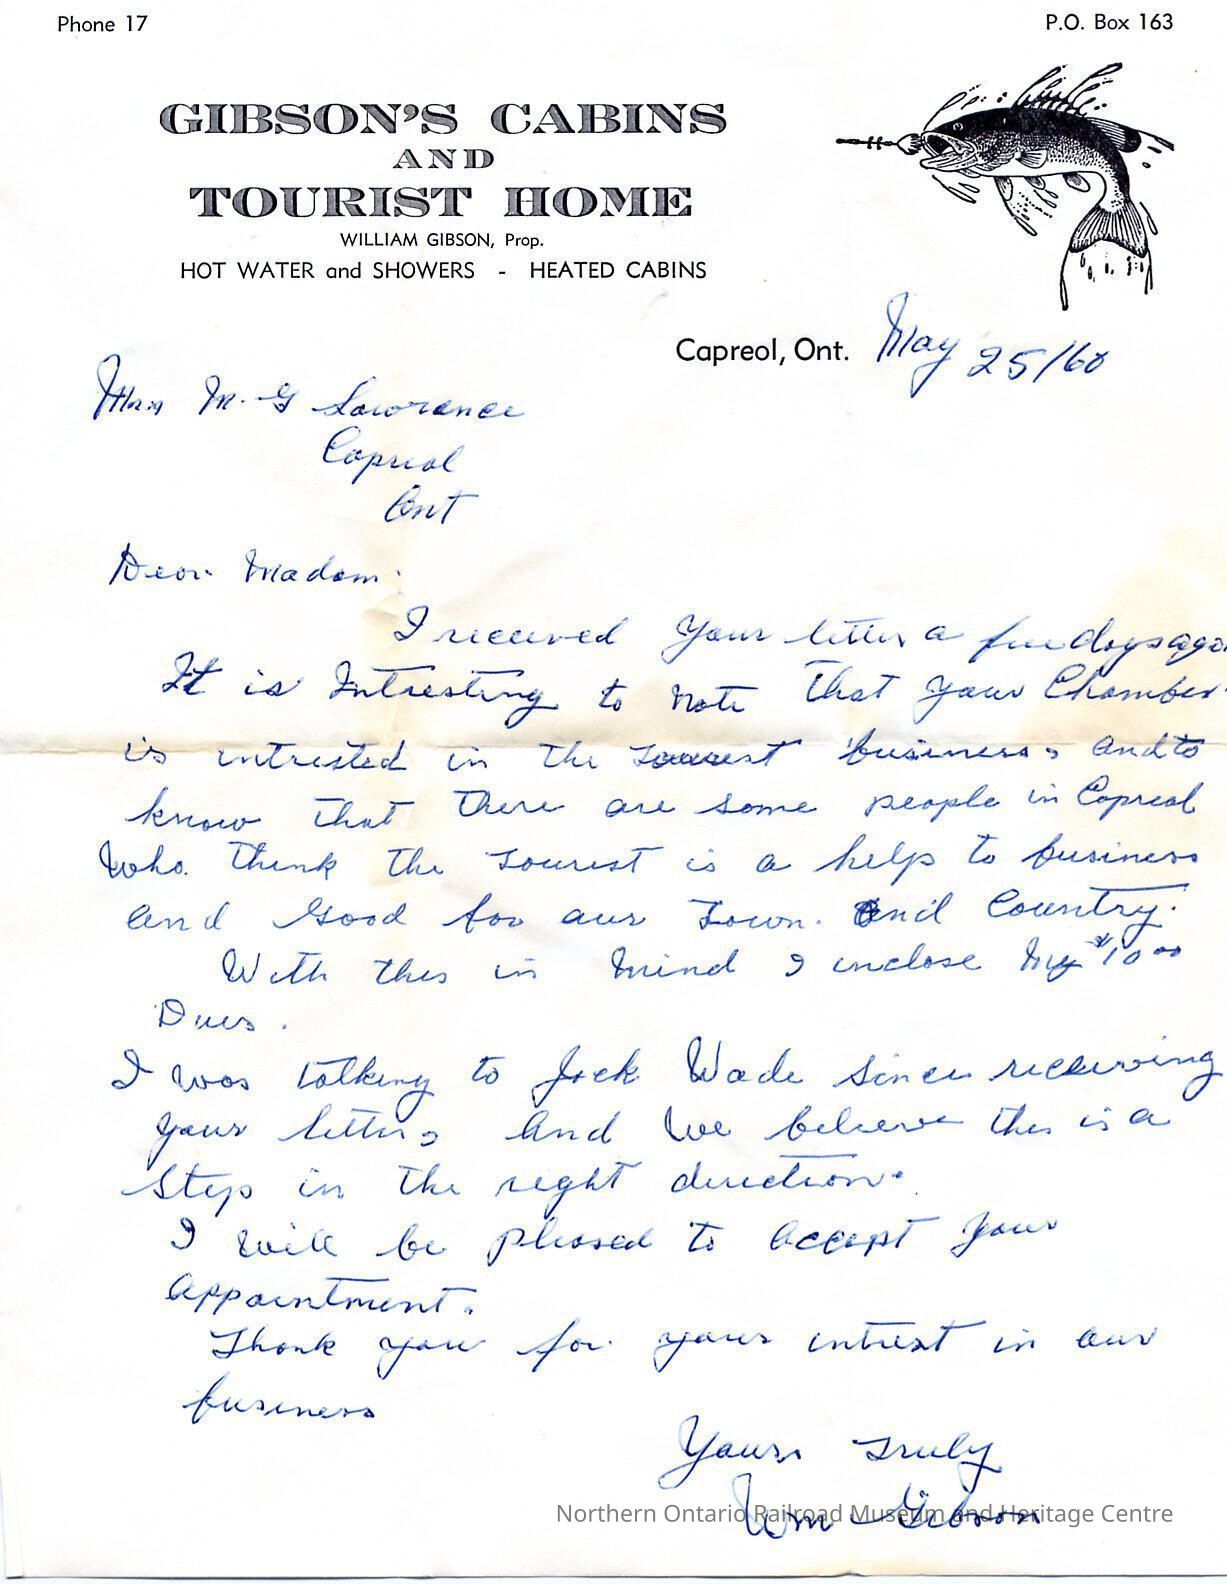 Phone 17
P.O. Box 163
GIBSON'S CABINS
AND
TOURIST HOME
WILLIAM GIBSON, Prop.
HOT WATER and SHOWERS - HEATED CABINS
Capreol, Ont. May 25/60
Mrs M. G Lawrence
Capreol
Ont
Dear Madam.
I received your letter a few days ago.
It is Intresting to note that your Chamber
is intrested in the Tourest business, and to
know that there are some people in Capreol
Who. think the Tourest is a help to business
and Good for our Town. and Country.
With this in mind I inclose my $10.00
Dues.
I was talking to Jack Wade since receiving
your letter, and we believe this is a
step in the right direction.
I will be pleased to accept your
appointment.
Thank you for your intrest in our
business
Yours Truly
Wm Gibson
Northern Ontario Railroad Museum and Heritage Centre